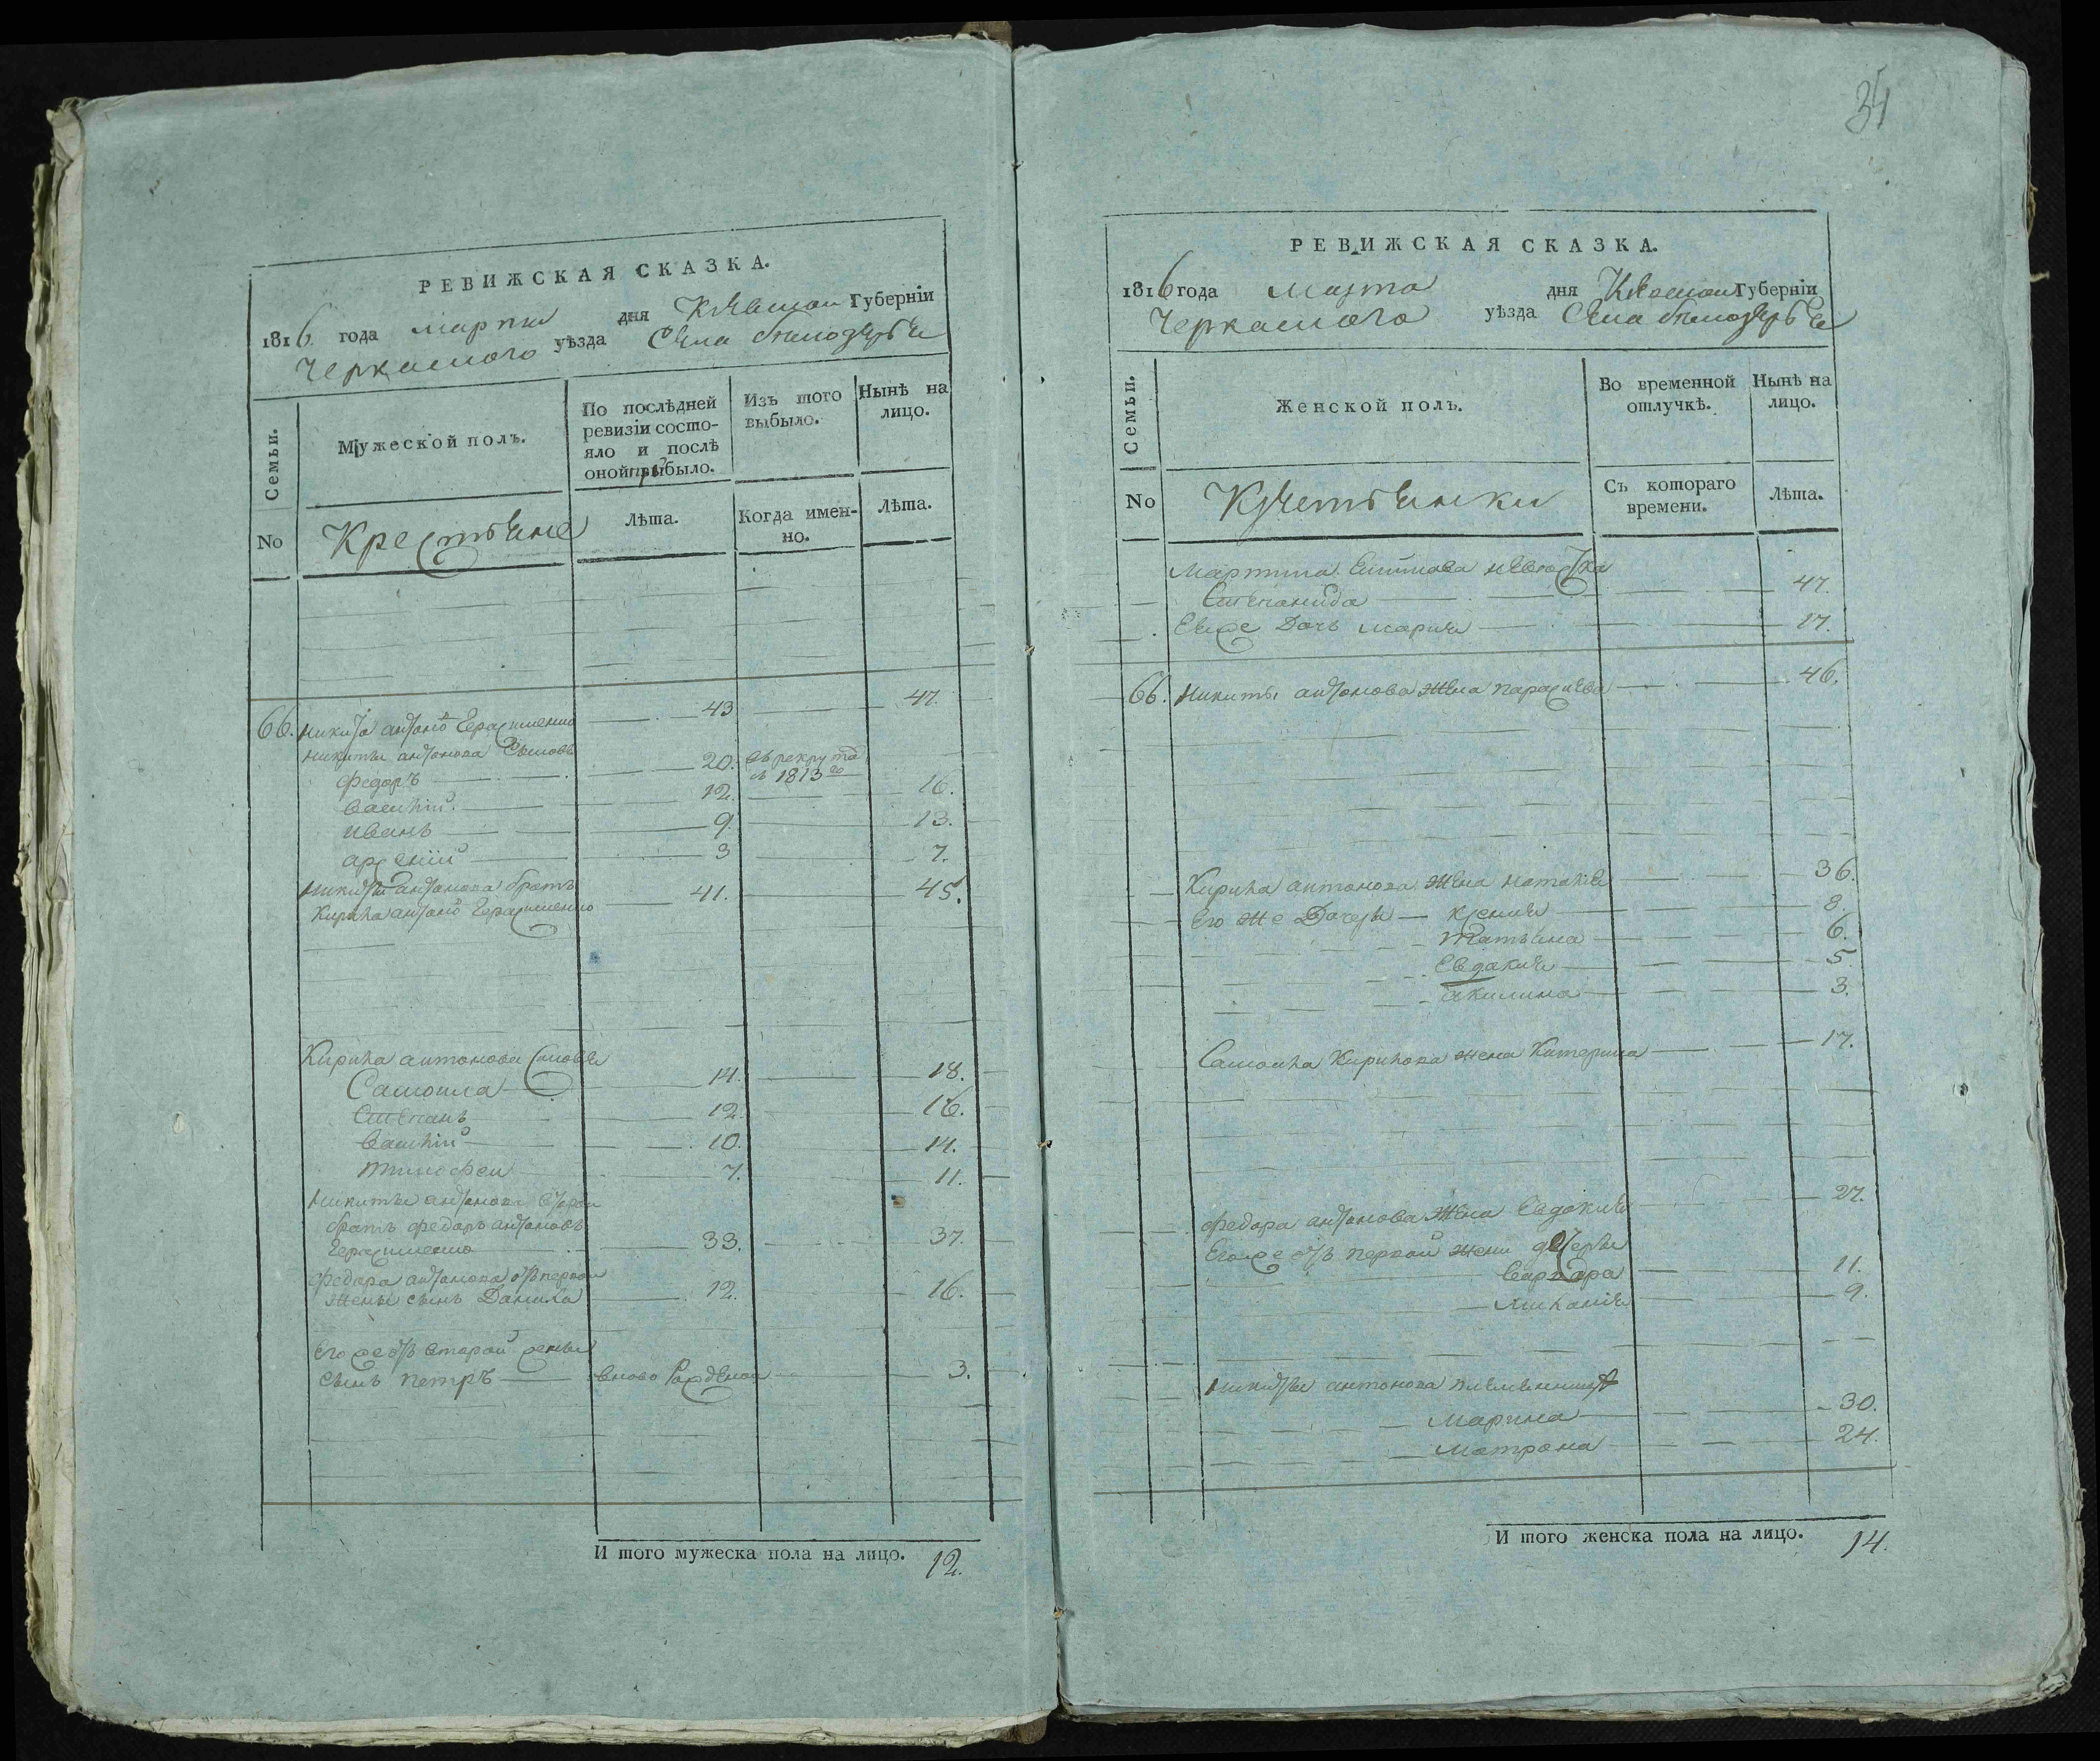 РЕВИЖСКАЯ СКАЗКА.
1816 года марта дня Киевской Губерніи
Черкаского уѣзда Села Белозерья
Семьи.
Мужеской полъ.
По послѣдней ревизіи состо-
яло и послѣ
оной прибыло.
Изъ того
выбыло.
Нынѣ на
лицо.
No
Крестьяне
Лѣта.
Когда имен-
но.
Лѣта.
66. Никита антоновъ Герасименко 43 47.
Никиты антонова Сыновья
Федоръ 20. въ рекрута
въ 1813 го
Василій 12. 16.
Иванъ 9. 13.
арсеній 3 7.
Никиты антонова братъ
Кирила антоновъ Герасименко 41. 45.
Кирила антонова Сыновья
Самоила 14. 18.
Степанъ 12. 16.
Василій 10. 14.
Тимофей 7. 11.
Никиты антонова второй
братъ федоръ антоновъ
Герасименко 33. 37.
Федора антонова отъ первой
жены сынъ Данила 12. 16.
Его же отъ второй жены
Сынъ Петръ вново рожденой 3.
И того мужеска пола на лицо. 12.
34
РЕВИЖСКАЯ СКАЗКА.
1816 года марта дня Киевской Губерніи
Черкаского уѣзда Села белозерья
Семьи.
Женской полъ.
Во временной
отлучкѣ.
Нынѣ на
лицо.
No
Крестьянки
Съ котораго
времени.
Лѣта.
Мартина невестка
Степанида 47.
Евоже Дочь мария 17.
66. Никиты антонова жена параскева 46.
Кирила антонова жена наталия 36.
Его же Дочери ксения 8.
татьяна 6.
Евдокия 5.
акилина 3.
Самоила Кирилова жена Катерина 17.
Федора антонова жена Евдокия 27.
Егоже отъ первой жены дочери
Варвара 11.
Миланія 9.
Никиты антонова племянницы
Марина 30.
Матрона 24.
И того женска пола на лицо. 14.